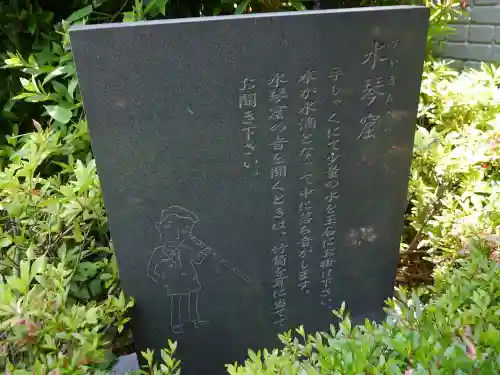 水琴窟
すいきんくつ
手しゃくにて少量の水を玉石にお掛け下さい。
水が水滴となって中に落ち音がします。
水琴窟の音を聞くときは、竹筒を耳に当てて
お聞き下さい。